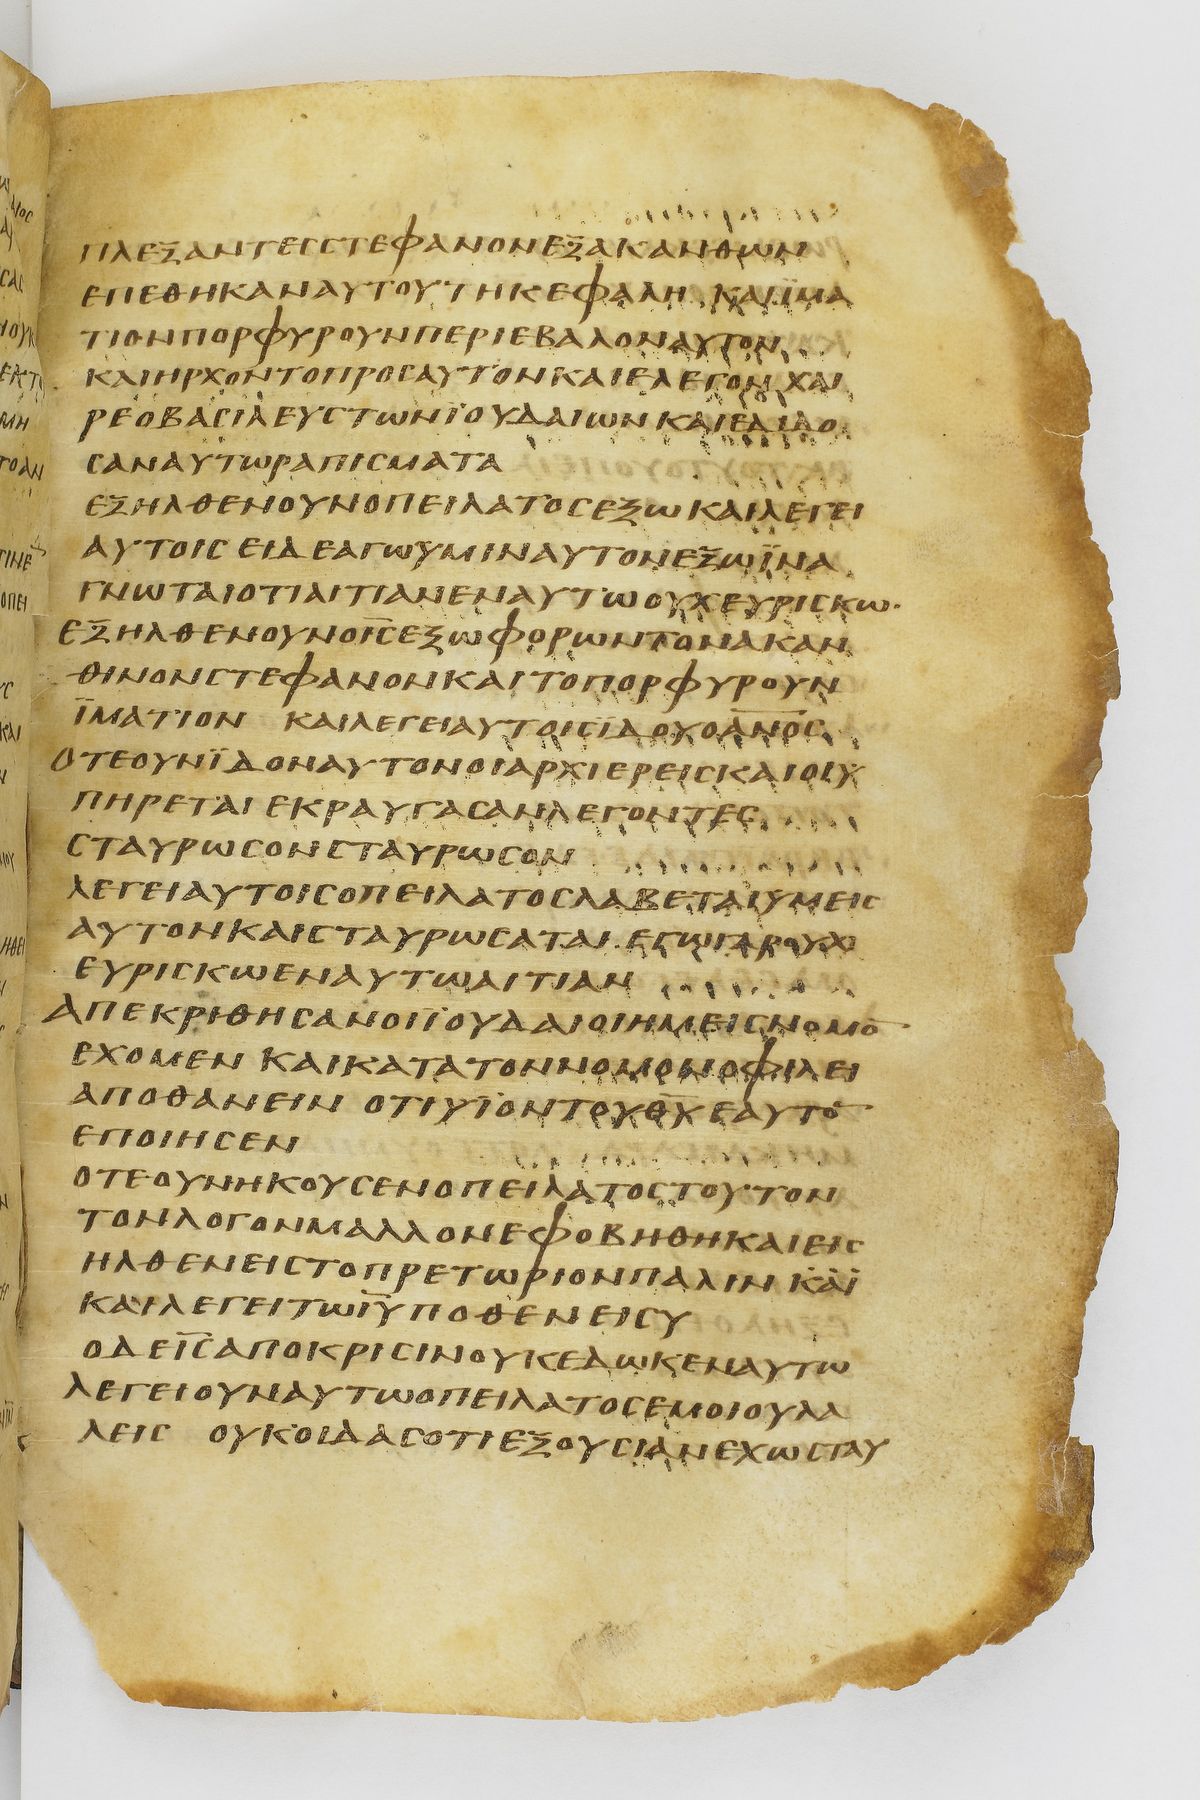 ΠΛΕΞΑΝΤΕССΤΕΦΑΝΟΝΕΞΑΚΑΝΘΩΝ
ΕΠΕΘΗΚΑΝΑΥΤΟΥΤΗΚΕΦΑΛΗ ΚΑΙΪΜΑ
ΤΙΟΝΠΟΡΦΥΡΟΥΝΠΕΡΙΕΒΑΛΟΝΑΥΤΟΝ
ΚΑΙΗΡΧΟΝΤΟΠΡΟСΑΥΤΟΝΚΑΙΕΛΕΓΟΝ ΧΑΙ
ΡΕΟΒΑСΙΛΕΥСΤΩΝΪΟΥΔΑΙΩΝ ΚΑΙΕΔΙΔΟ
СΑΝΑΥΤΩΡΑΠΙСΜΑΤΑ
ΕΞΗΛΘΕΝΟΥΝΟΠΕΙΛΑΤΟСΕΞΩ ΚΑΙΛΕΓΕΙ
ΑΥΤΟΙС ΕΙΔΕΑΓΩΫΜΙΝΑΥΤΟΝΕΞΩΪΝΑ
ΓΝΩΤΑΙΟΤΙΑΙΤΙΑΝΕΝΑΥΤΩ ΟΥΧΕΥΡΙСΚΩ·
ΕΞΗΛΘΕΝΟΥΝΟΙ̅С̅ΕΞΩΦΟΡΩΝΤΟΝΑΚΑΝ
ΘΙΝΟΝСΤΕΦΑΝΟΝΚΑΙΤΟΠΟΡΦΥΡΟΥΝ
ΪΜΑΤΙΟΝ ΚΑΙΛΕΓΕΙΑΥΤΟΙСΪΔΟΥΟΑ̅Ν̅Ο̅С̅
ΟΤΕΟΥΝΪΔΟΝΑΥΤΟΝΟΙΑΡΧΙΕΡΕΙСΚΑΙΟΙΥ
ΠΗΡΕΤΑΙ ΕΚΡΑΥΓΑСΑΝΛΕΓΟΝΤΕС
СΤΑΥΡΩСΟΝСΤΑΥΡΩСΟΝ
ΛΕΓΕΙΑΥΤΟΙСΟΠΕΙΛΑΤΟСΛΑΒΕΤΑΙΥΜΕΙС
ΑΥΤΟΝΚΑΙСΤΑΥΡΩСΑΤΑΙ· ΕΓΩΓΑΡΟΥΧ
ΕΥΡΙСΚΩΕΝΑΥΤΩΑΙΤΙΑΝ
ΑΠΕΚΡΙΘΗСΑΝΟΙΪΟΥΔΑΙΟΙΗΜΕΙСΝΟΜΟ̅
ΕΧΟΜΕΝ ΚΑΙΚΑΤΑΤΟΝΝΟΜΟΝΟΦΙΛΕΙ
ΑΠΟΘΑΝΕΙΝ ΟΤΙΥΪΟΝΤΟΥΘ̅Υ̅ΕΑΥΤΟ̅
ΕΠΟΙΗСΕΝ
ΟΤΕΟΥΝΗΚΟΥСΕΝΟΠΕΙΛΑΤΟСΤΟΥΤΟΝ
ΤΟΝΛΟΓΟΝΜΑΛΛΟΝΕΦΟΒΗΘΗΚΑΙΕΙС
ΗΛΘΕΝΕΙСΤΟΠΡΕΤΩΡΙΟΝΠΑΛΙΝ ΚΑΙ
ΚΑΙΛΕΓΕΙΤΩΙ̅Υ̅ΠΟΘΕΝΕΙСΥ
ΟΔΕΙ̅С̅ΑΠΟΚΡΙСΙΝΟΥΚΕΔΩΚΕΝΑΥΤΩ
ΛΕΓΕΙΟΥΝΑΥΤΩΟΠΕΙΛΑΤΟСΕΜΟΙΟΥΛΑ
ΛΕΙС ΟΥΚΟΙΔΑСΟΤΙΕΞΟΥСΙΑΝΕΧΩСΤΑΥ